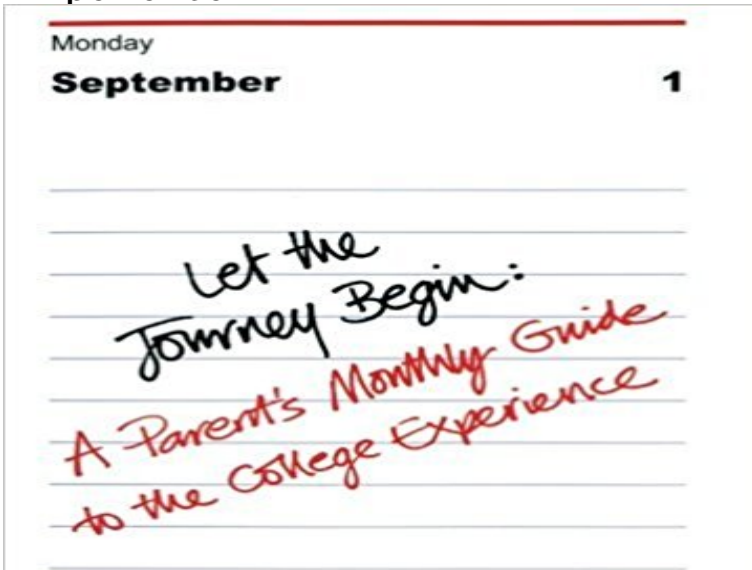 Monday
September 1
Let the
Journey Begin:
A Parent's Monthly Guide
to the College Experience